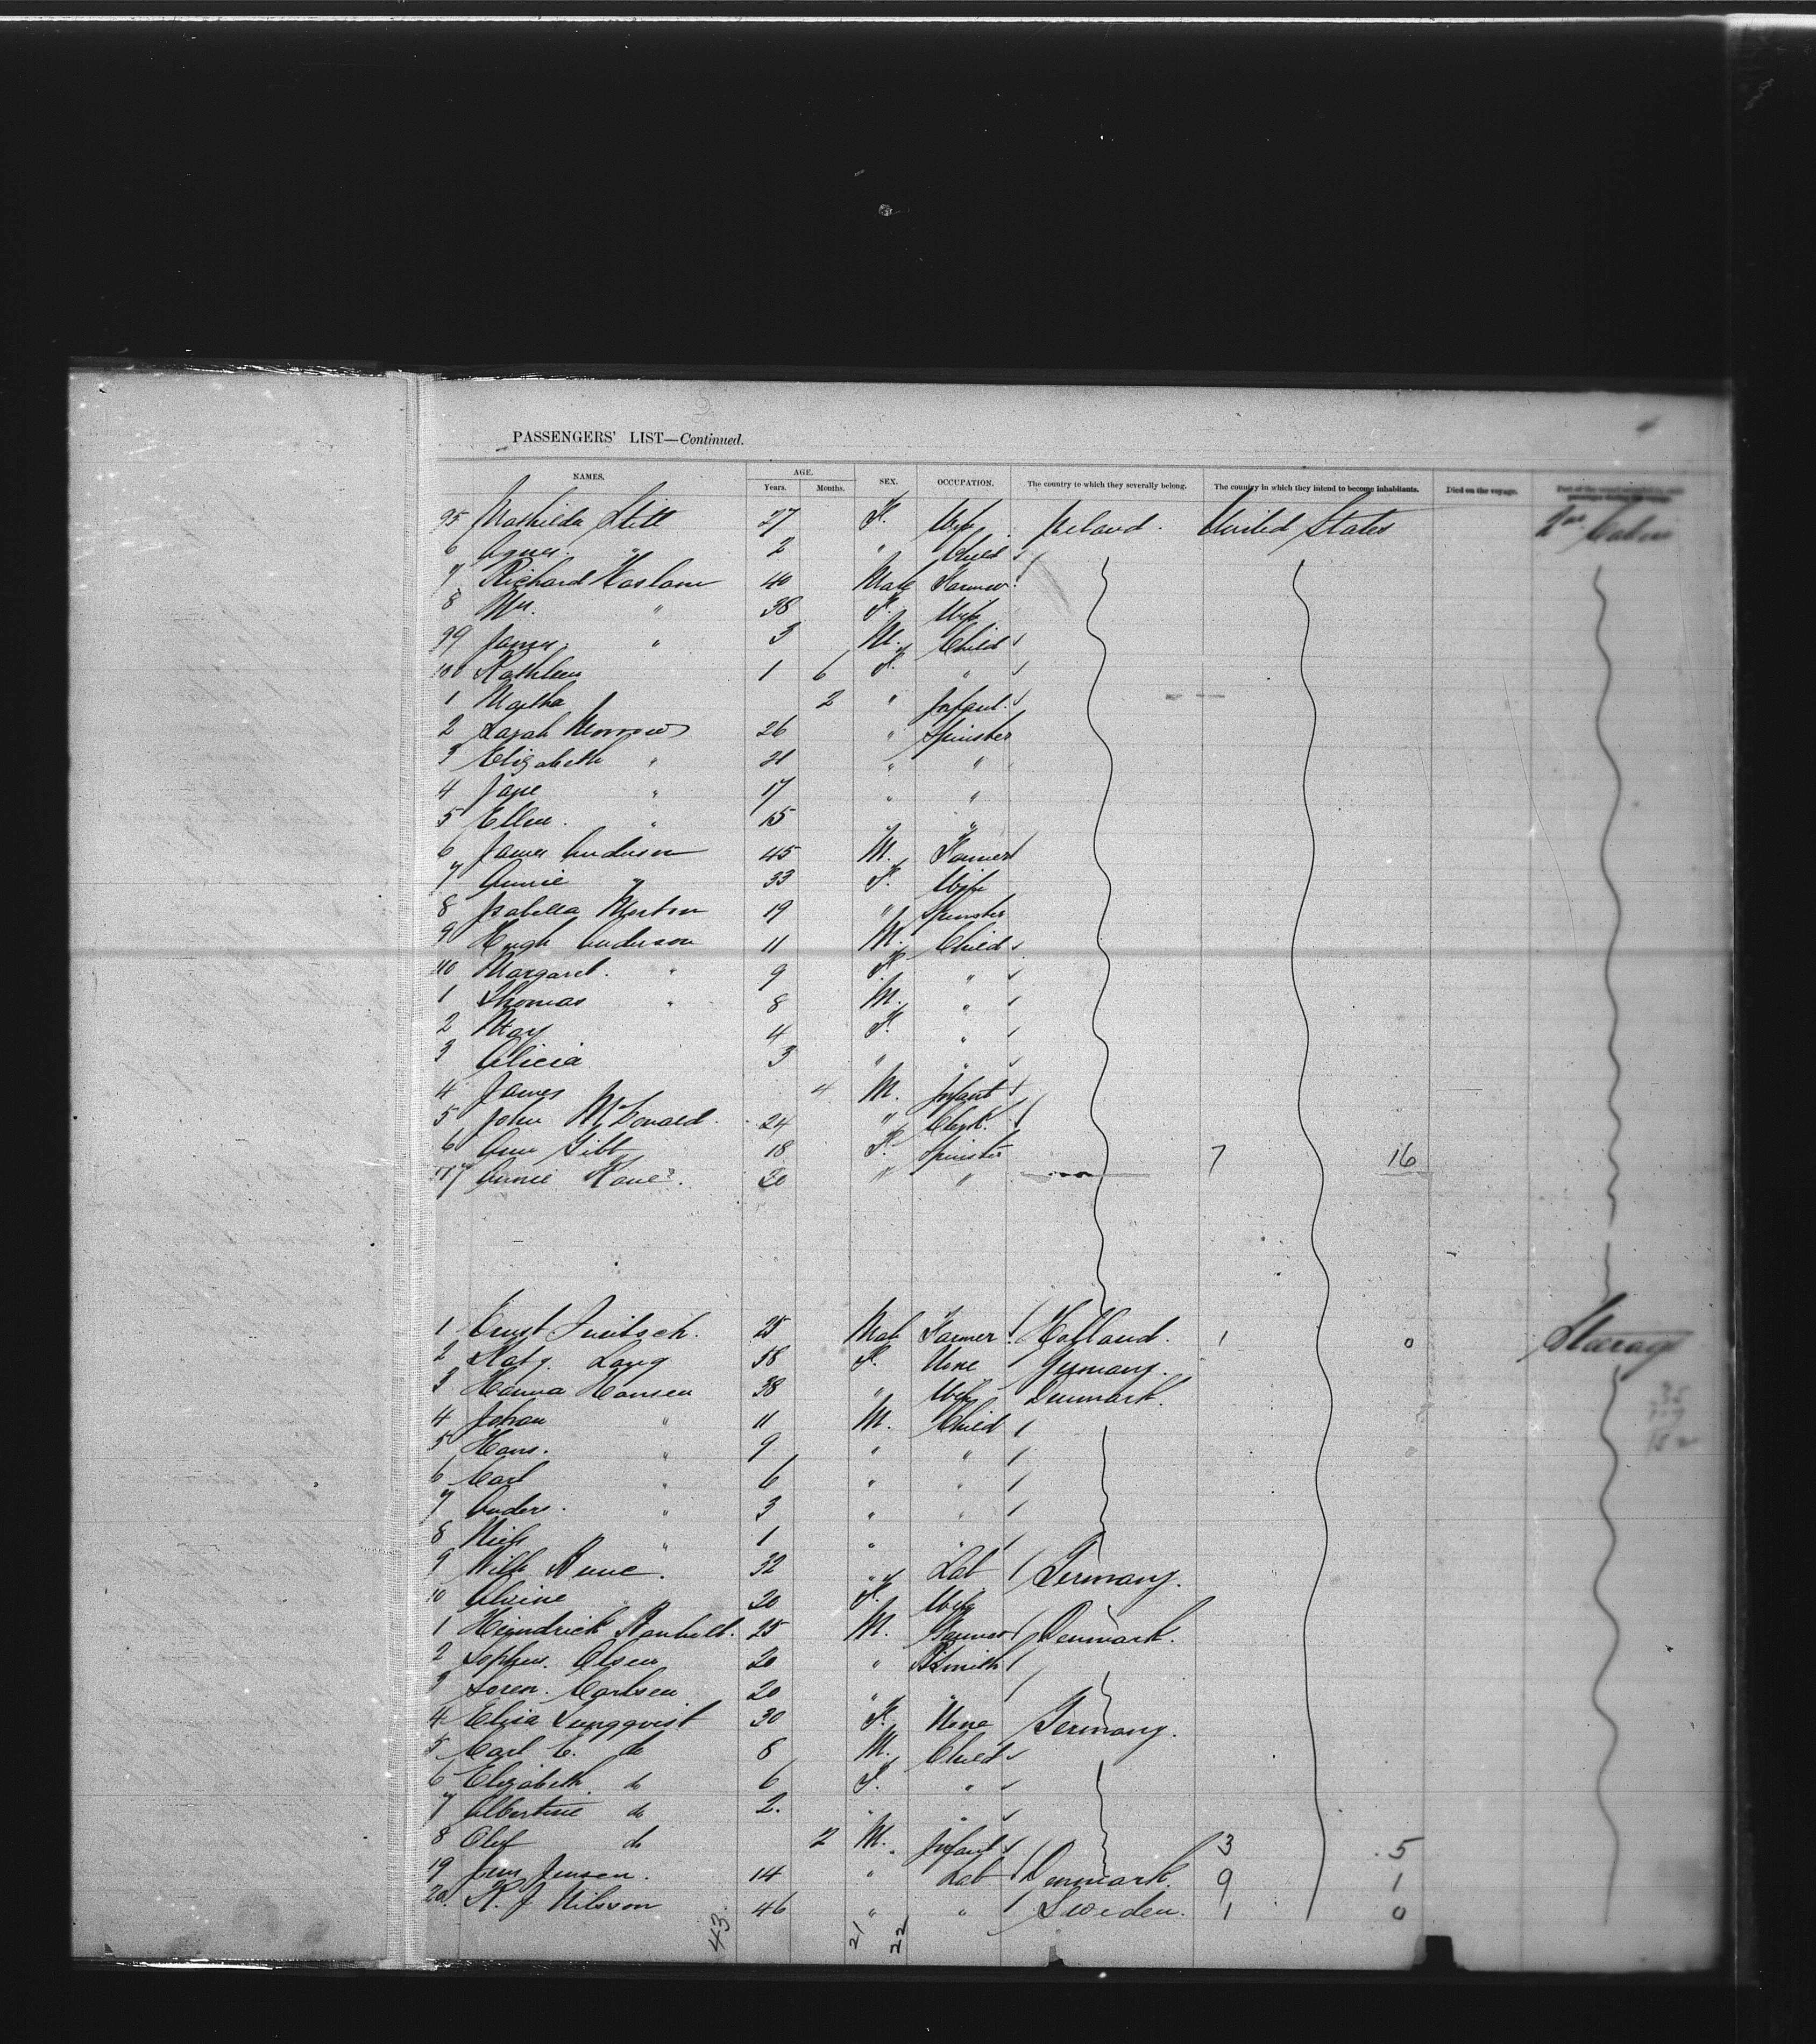 PASSENGERS' LIST—Continued.
NAMES. AGE. SEX. OCCUPATION. The country to which they severally belong. The country in which they intend to become inhabitants. Died on the voyage.
Years. Months.
95 Mathilda Still 27 F. Wife Ireland. United States 2nd Cabin
6 Agnes. " 2 " Child
7 Richard Haslam 40 Male Farmer
8 Mrs. " 38 F. Wife
99 James " 3 M. Child
100 Kathleen 1 6 F. "
1 Martha 2 " Infant.
2 Sarah Morrow 26 " Spinster
3 Elizabeth " 21 " "
4 Jane " 17 " "
5 Ellen. " 15 " "
6 James Anderson 45 M. Farmer
7 Annie " 33 F. Wife
8 Isabella 19 " Spinster
9 Hugh Anderson 11 M. Child
110 Margaret. " 9 F. "
1 Thomas " 8 M. "
2 May 4 F. "
3 Alicia 3 " "
4 James 4 M. Infant
5 John McDonald. 24 " Clerk.
6 Ann Gibb 18 F. Spinster 7 16
117 Annie Kane. 20 " "
1 Ernst 25 Male Farmer Holland. 1 0 Steerage
2 Kat Lang 58 F. None Germany.
3 Hanna Hansen 38 " Wife Denmark.
4 Johan " 11 M. Child
5 Hans. " 9 " "
6 Carl " 6 " "
7 Anders. " 3 " "
8 Niels " 1 " "
9 Wilh 32 " Lab Germany.
10 " 20 F. Wife
1 Heindrich 25 M. Farmer Denmark.
2 Sophus. Olsen 20 " Bsmith
3 Soren. Carlsen 20 " "
4 Elisa Lungqvist 30 F. None Germany.
5 Carl E. do 8 M. Child
6 Elizabeth do 6 F. "
7 Albertine do 2. " "
8 Olof do 2 M. Infant 3 5
19 Jens Jensen. 14 " Lab Denmark. 9 1
20. K. J Nilsson 46 " " Sweden. 1 0
43. 21 22